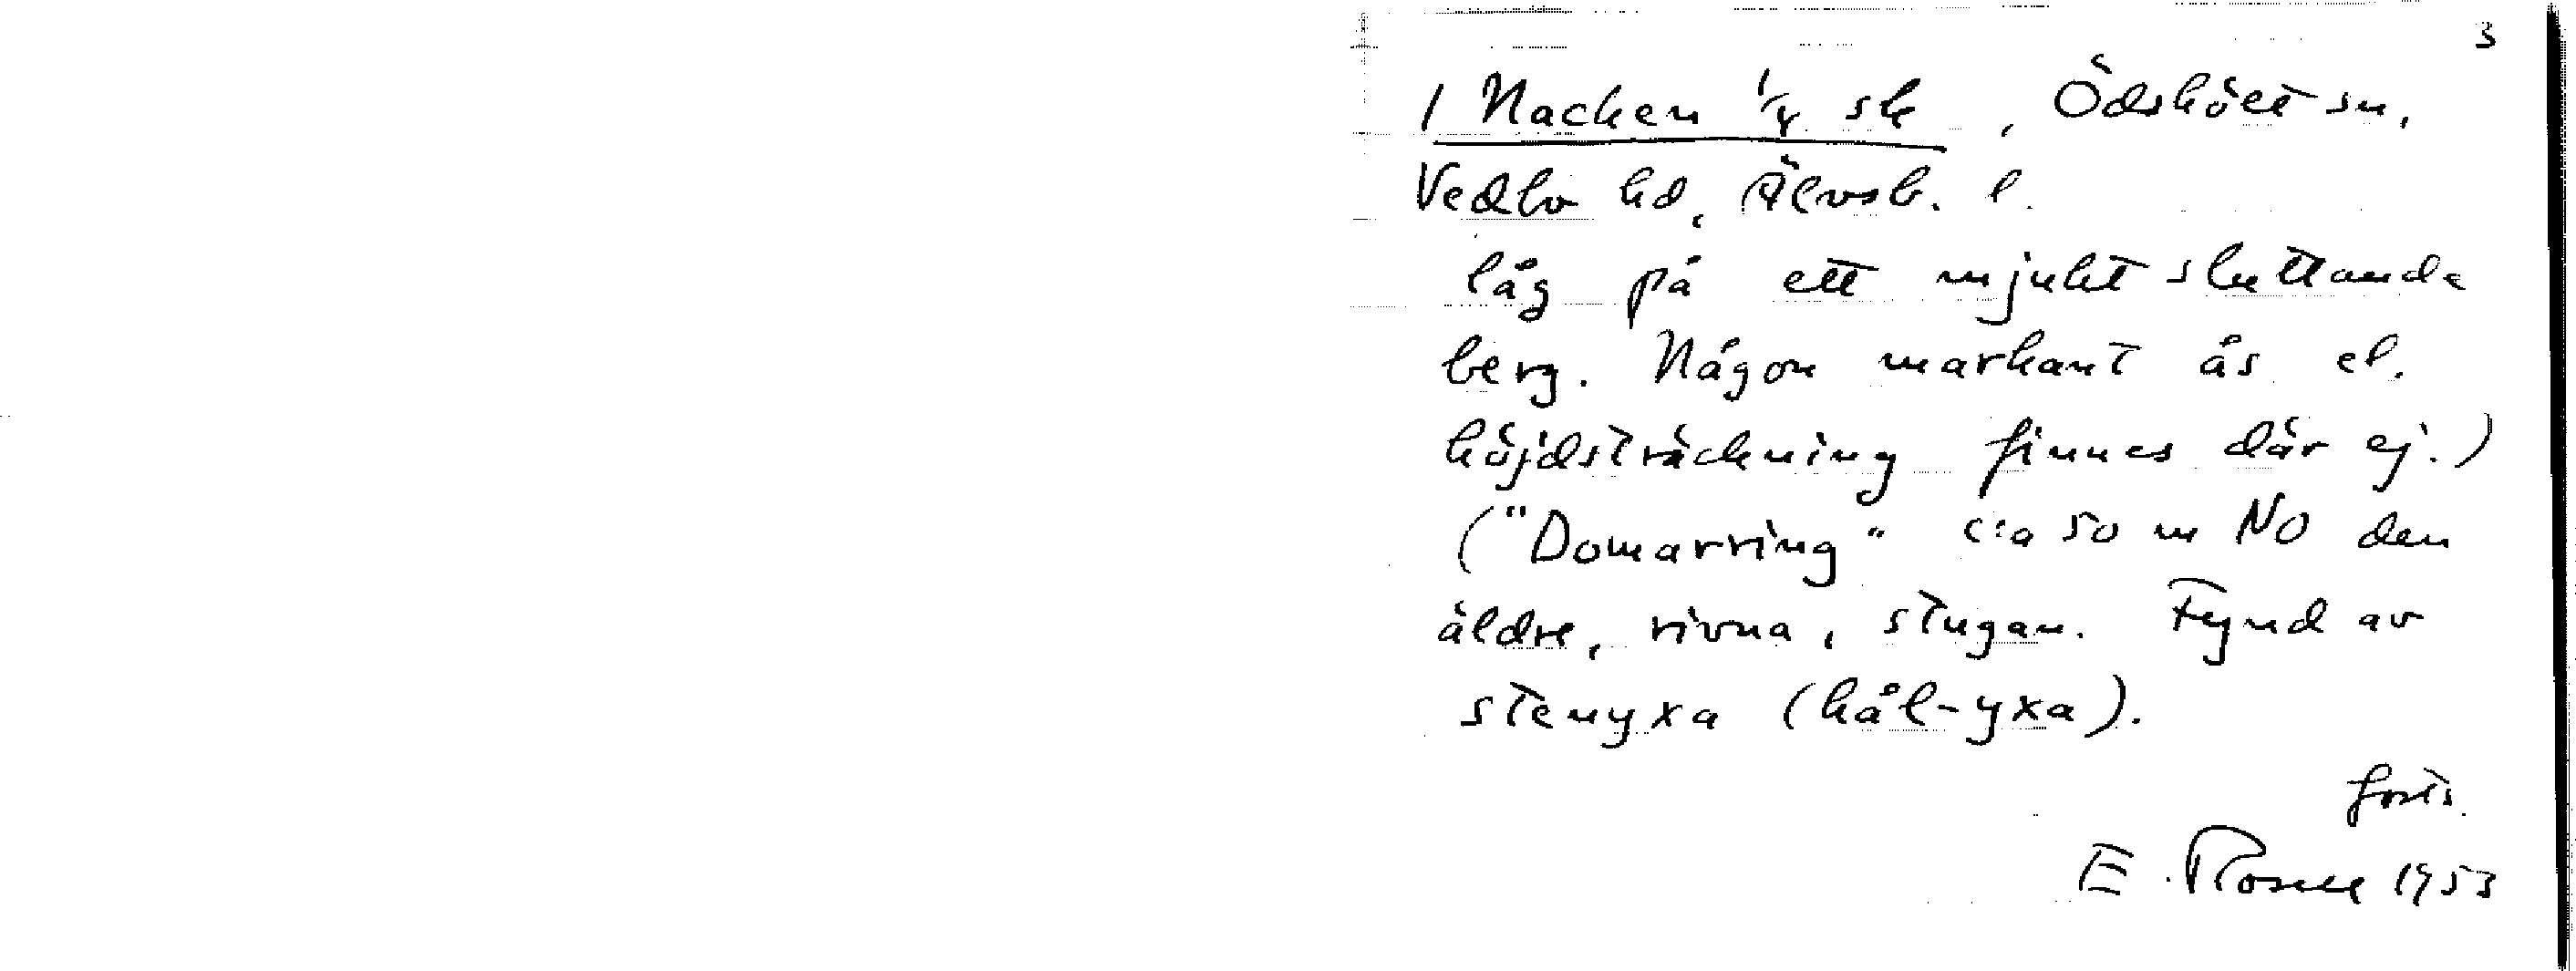 3
1 Nacken 1/4 sk, Ödskölt sn,
Vedbo hd, Älvsb. l.
låg på ett mjukt sluttande
berg. Någon markant ås el.
höjdsträckning finnes där ej.)
("Domarring" c:a 50 m NO den
äldre, rivna, stugan. Fynd av
stenyxa (hål-yxa).
forts.
E. Rosell 1953